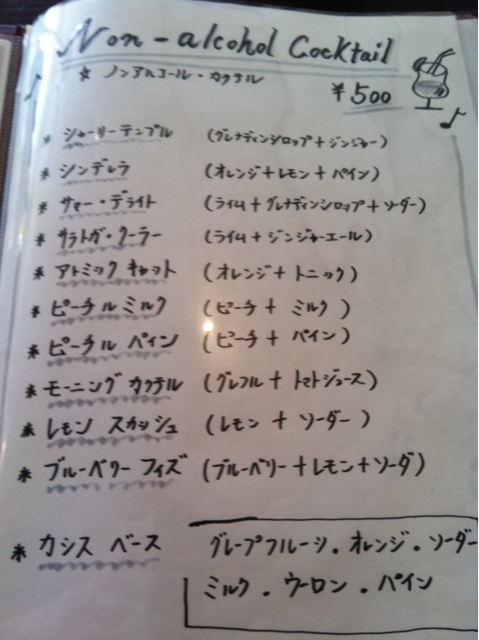 Non-alcohol Cocktail
* ノンアルコール・カクテル
¥500
* シャーリーテンプル (グレナディンシロップ+ジンジャー)
* シンデレラ (オレンジ+レモン+パイン)
* サマー・デライト (ライム+グレナディンシロップ+ソーダー)
* サラトガ・クーラー (ライム+ジンジャーエール)
* アトミック キャット (オレンジ+トニック)
* ピーチルミルク (ピーチ+ミルク)
* ピーチル パイン (ピーチ+パイン)
* モーニング カクテル (グレフル+トマトジュース)
* レモン スカッシュ (レモン+ソーダー)
* ブルーベリー フィズ (ブルーベリー+レモン+ソーダ)
* カシス ベース グレープフルーツ.オレンジ.ソーダー
ミルク.ウーロン.パイン